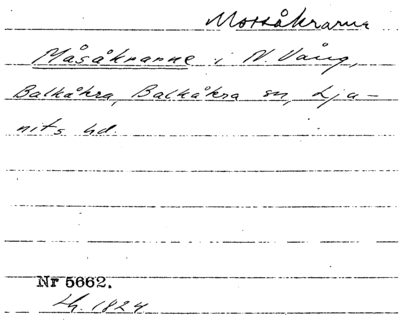 Mossåkrarne
Måsåkranne i N. Vång,
Balkåkra, Balkåkra sn, Lju-
nits hd.
Nr 5662.
Lh. 1824